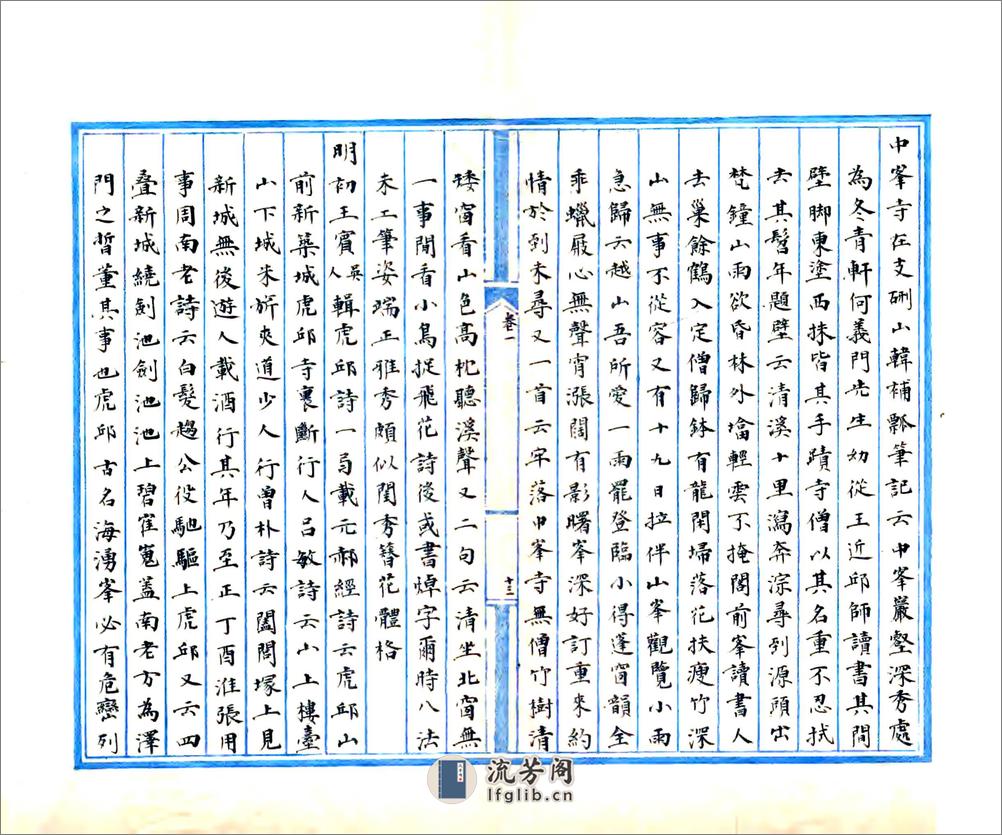 中峯寺在支硎山韓補瓢筆記云中峯巖壑深秀處
為冬青軒何義門先生幼從王近邱師讀書其間
壁脚東塗西抹皆其手蹟寺僧以其名重不忍拭
去其髫年題壁云清溪十里瀉奔淙尋到源頭出
梵鐘山雨欲昏林外墖輕雲不掩閣前峯讀書人
去巢餘鶴入定僧歸鉢有龍閑埽落花扶瘦竹深
山無事不從容又有十九日拉伴山峯觀覽小雨
急歸云越山吾所愛一雨罷登臨小得蓬窗韻全
乖蠟屐心無聲宵漲闊有影曙峯深好訂重來約
情於到未尋又一首云牢落中峯寺無僧竹樹清
卷一
十三
矮窗看山色高枕聽溪聲又二句云清坐北窗無
一事閒看小鳥捉飛花詩後或書焯字爾時八法
未工筆姿端正雅秀頗似閨秀簪花體格
明初王賓吳人輯虎邱詩一局載元郝經詩云虎邱山
前新築城虎邱寺裏斷行人呂敏詩云山上樓臺
山下城朱旂夾道少人行曾朴詩云闔閭塚上見
新城無後遊人載酒行其年乃至正丁酉淮張用
事周南老詩云白髮趨公役馳驅上虎邱又云四
叠新城繞劍池劍池池上碧崔嵬蓋南老方為澤
門之晳董其事也虎邱古名海湧峯必有危巒列
流芳阁
lfglib.cn